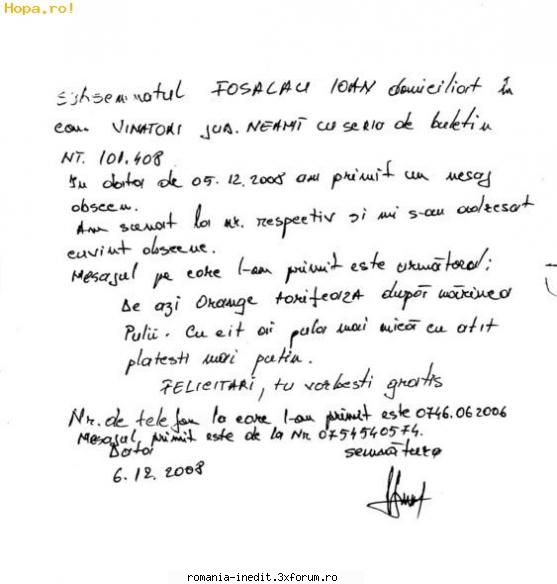 Hopa.ro!
Subsemnatul FOSALAU IOAN domiciliat în
com. VINATORI JUD. NEAMT cu serio de buletin
NT. 101.408
In data de 05.12.2008 am primit un mesaj
obscen.
Am sunat la nr. respectiv și mi s-au adresat
cuvint obscene.
Mesajul pe care l-am primit este următorul:
De azi Orange tarifeaza după mărimea
Pulii. Cu cit ai pula mai mică cu atit
platesti mai putin.
FELICITARI, tu vorbesti gratis
Nr. de telefon la care l-am primit este 0746.062006
Mesajul primit este de la Nr. 0754540574.
Data semnătura
6.12.2008
romania-inedit.3xforum.ro